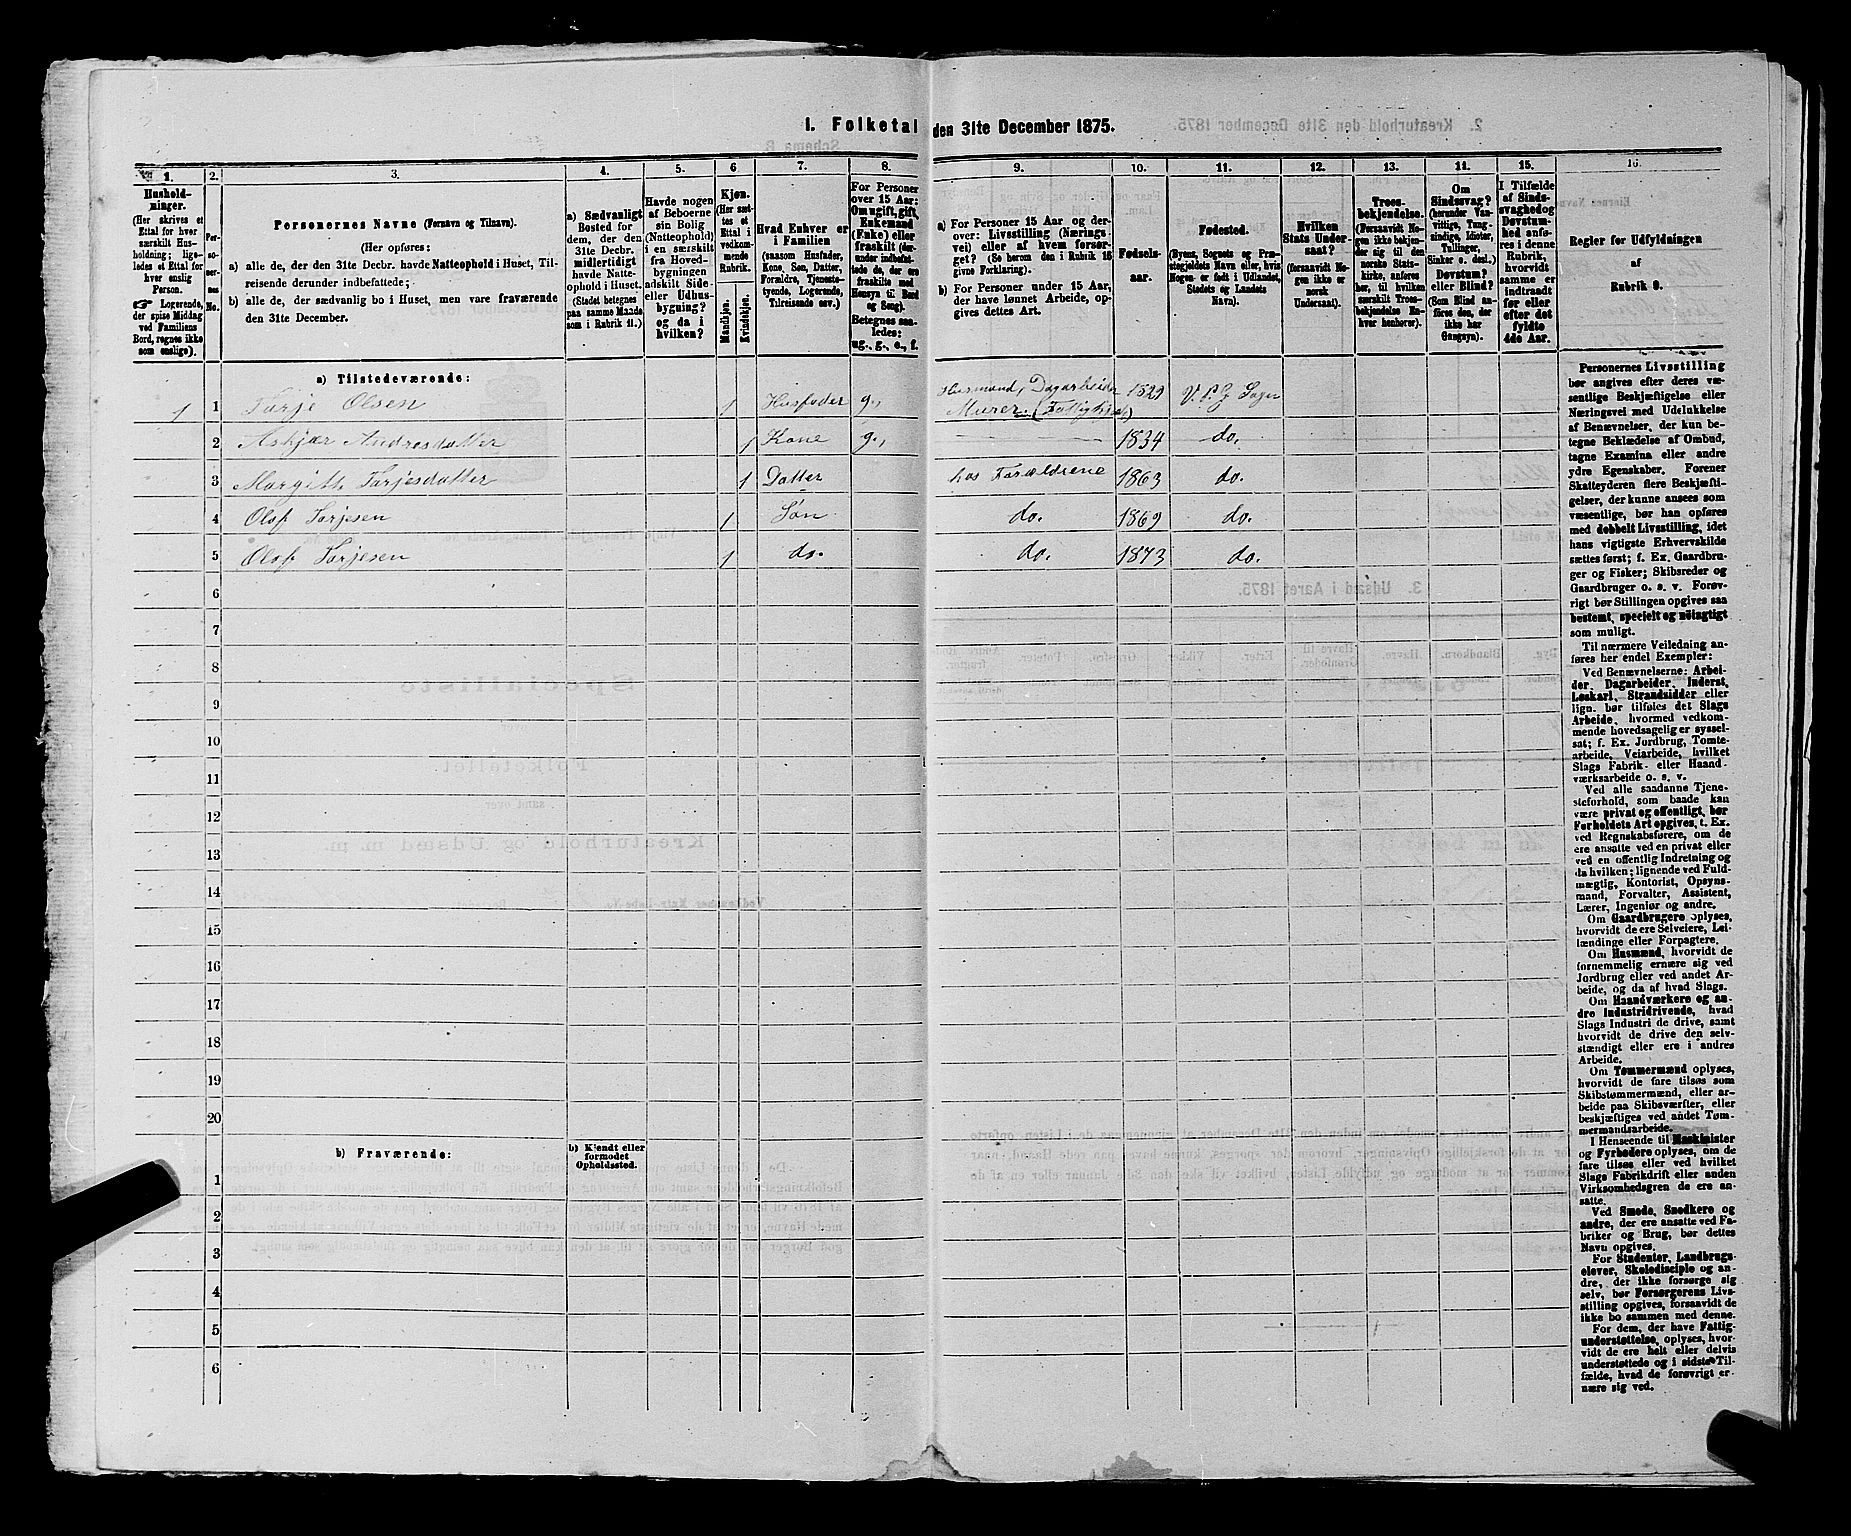 1. Folketal den 31te December 1875.
1.
Hushold-
ninger.
(Her skrives et
Ettal for hver
særskilt Hus-
holdning; lige-
ledes et Ettal for
hver enslig
Person.
☞ Logerende,
der spise Middag
ved Familiens
Bord, regnes ikke
som enslige).
2.
Per-
so-
ner-
nes
No.
3.
Personernes Navne (Fornavn og Tilnavn).
(Her opføres:
a) alle de, der den 31te Decbr. havde Natteophold i Huset, Til-
reisende derunder indbefattede;
b) alle de, der sædvanlig bo i Huset, men vare fraværende
den 31te December.
4.
a) Sædvanligt
Bosted for
dem, der den
31te Decbr.
midlertidigt
havde Natte-
ophold i Huset.
(Stedet betegnes
paa samme Maade
som i Rubrik 11.)
5.
Havde nogen
af Beboerne
sin Bolig
(Natteophold)
i en særskilt
fra Hoved-
bygningen
adskilt Side-
eller Udhus-
bygning?
og da i
hvilken?
6
Kjøn.
(Her sæt-
tes et
Ettal i
vedkom-
mende
Rubrik.
Mandkjøn.
Kvindekjøn.
7.
Hvad Enhver er
i Familien
(saasom Husfader,
Kone, Søn, Datter,
Forældre, Tjeneste-
tyende, Logerende,
Tilreisende osv.)
8.
For Personer
over 15 Aar:
Om ugift, gift,
Enkemand
(Enke) eller
fraskilt (der-
under indbefat-
tede de, der ere
fraskilte med
Hensyn til Bord
og Seng).
Betegnes saa-
ledes:
ug., g., e., f.
9.
a) For Personer 15 Aar og der-
over: Livsstilling (Nærings-
vei) eller af hvem forsør-
get? (Se herom den i Rubrik 16
givne Forklaring).
b) For Personer under 15 Aar,
der have lønnet Arbeide, op-
gives dettes Art.
10.
Fødsels-
aar.
11.
Fødested.
(Byens, Sognets og Præ-
stegjeldets Navn eller, hvis
Nogen er født i Udlandet,
Stedets og Landets
Navn).
12.
Hvilken
Stats Under-
saat?
(forsaavidt No-
gen ikke er
norsk
Undersaat).
13.
Troes-
bekjendelse.
(Forsaavidt No-
gen ikke bekjen-
der sig til den
norske Stats-
kirke, anføres
her, til hvilken
særskilt Troes-
bekjendelse En-
hver henhører).
14.
Om
Sindssvag?
(herunder Van-
vittige, Tung-
sindige, Idioter,
Tullinger,
Sinker o. desl.)
Døvstum?
eller Blind?
(Som Blind an-
føres den, der
ikke har
Gangsyn).
15.
I Tilfælde
af Sinds-
svaghed og
Døvstum-
hed anføres
i denne
Rubrik,
hvorvidt
samme er
indtraadt
før eller
efter det
fyldte
4de Aar.
16.
Regler for Udfyldningen
af
Rubrik 9.
a) Tilstedeværende:
1 1 Tarje Olsen 1 Husfader g., Husmand, Dagarbeider 1829 V. P. G Sogn
Murer (Fattighjælp)
2 Askjær Andresdatter 1 Kone g., 1834 do.
3 Margith Tarjesdatter 1 Datter hos Forældrene 1863 do.
4 Olaf Tarjesen 1 Søn do. 1869 do.
5 Olaf Tarjesen 1 do. do. 1873 do.
6
7
8
9
10
11
12
13
14
15
16
17
18
19
20
b) Fraværende:
b) Kjendt eller
formodet
Opholdssted.
1
2
3
4
5
6
Personernes Livsstilling
bør angives efter deres væ-
sentlige Beskjæftigelse eller
Næringsvei med Udelukkelse
af Benævnelser, der kun be-
tegne Beklædelse af Ombud,
tagne Examina eller andre
ydre Egenskaber. Forener
Skatteyderen flere Beskjæfti-
gelser, der kunne ansees som
væsentlige, bør han opføres
med dobbelt Livsstilling, idet
hans vigtigste Erhvervskilde
sættes først; f. Ex. Gaardbru-
ger og Fisker; Skibsreder og
Gaardbruger o. s. v. Forøv-
rigt bør Stillingen opgives saa
bestemt, specielt og nöiagtigt
som muligt.
Til nærmere Veiledning an-
føres her endel Exempler:
Ved Benævnelserne: Arbei-
der, Dagarbeider, Inderst,
Løskarl, Strandsidder eller
lign. bør tilføies det Slags
Arbeide, hvormed vedkom-
mende hovedsagelig er syssel-
sat; f. Ex. Jordbrug, Tomte-
arbeide, Veiarbeide, hvilket
Slags Fabrik- eller Haand-
værksarbeide o. s. v.
Ved alle saadanne Tjene-
steforhold, som baade kan
være privat og offentligt, bør
Forholdets Art opgives, t. Ex.
ved Regnskabsførere, om de
ere ansatte ved en privat eller
ved en offentlig Indretning og
da hvilken; lignende ved Fuld-
mægtig, Kontorist, Opsyns-
mand, Forvalter, Assistent,
Lærer, Ingeniør og andre.
Om Gaardbrugere oplyses,
hvorvidt de ere Selveiere, Lei-
lændinge eller Forpagtere.
Om Husmænd, hvorvidt de
fornemmelig ernære sig ved
Jordbrug eller ved andet Ar-
beide, og da af hvad Slags.
Om Haandværkere og an-
dre industridrivende, hvad
Slags Industri de drive, samt
hvorvidt de drive den selv-
stændigt eller ere i andres
Arbeide.
Om Tømmermænd oplyses,
hvorvidt de fare tilsøs som
Skibstømmermænd, eller ar-
beide paa Skibsværfter, eller
beskjæftiges ved andet Tøm-
mermandsarbeide.
I Henseende til Maskinister
og Fyrbødere oplyses, om de
fare tilsøs eller ved hvilket
Slags Fabrikdrift eller anden
Virksomhedsgren de ere an-
satte.
Ved Smede, Snedkere og
andre, der ere ansatte ved Fa-
briker og Brug, bør dettes
Navn opgives.
For Studenter, Landbrugs-
elever, Skoledisciple og an-
dre, der ikke forsørge sig
selv, bør Forsørgerens Livs-
stilling opgives, forsaavidt de
ikke bo sammen med denne.
For dem, der have Fattig-
understøttelse, oplyses, hvor-
vidt de ere helt eller delvis
understøttede og i sidste Til-
fælde, hvad de forøvrigt er-
nære sig ved.